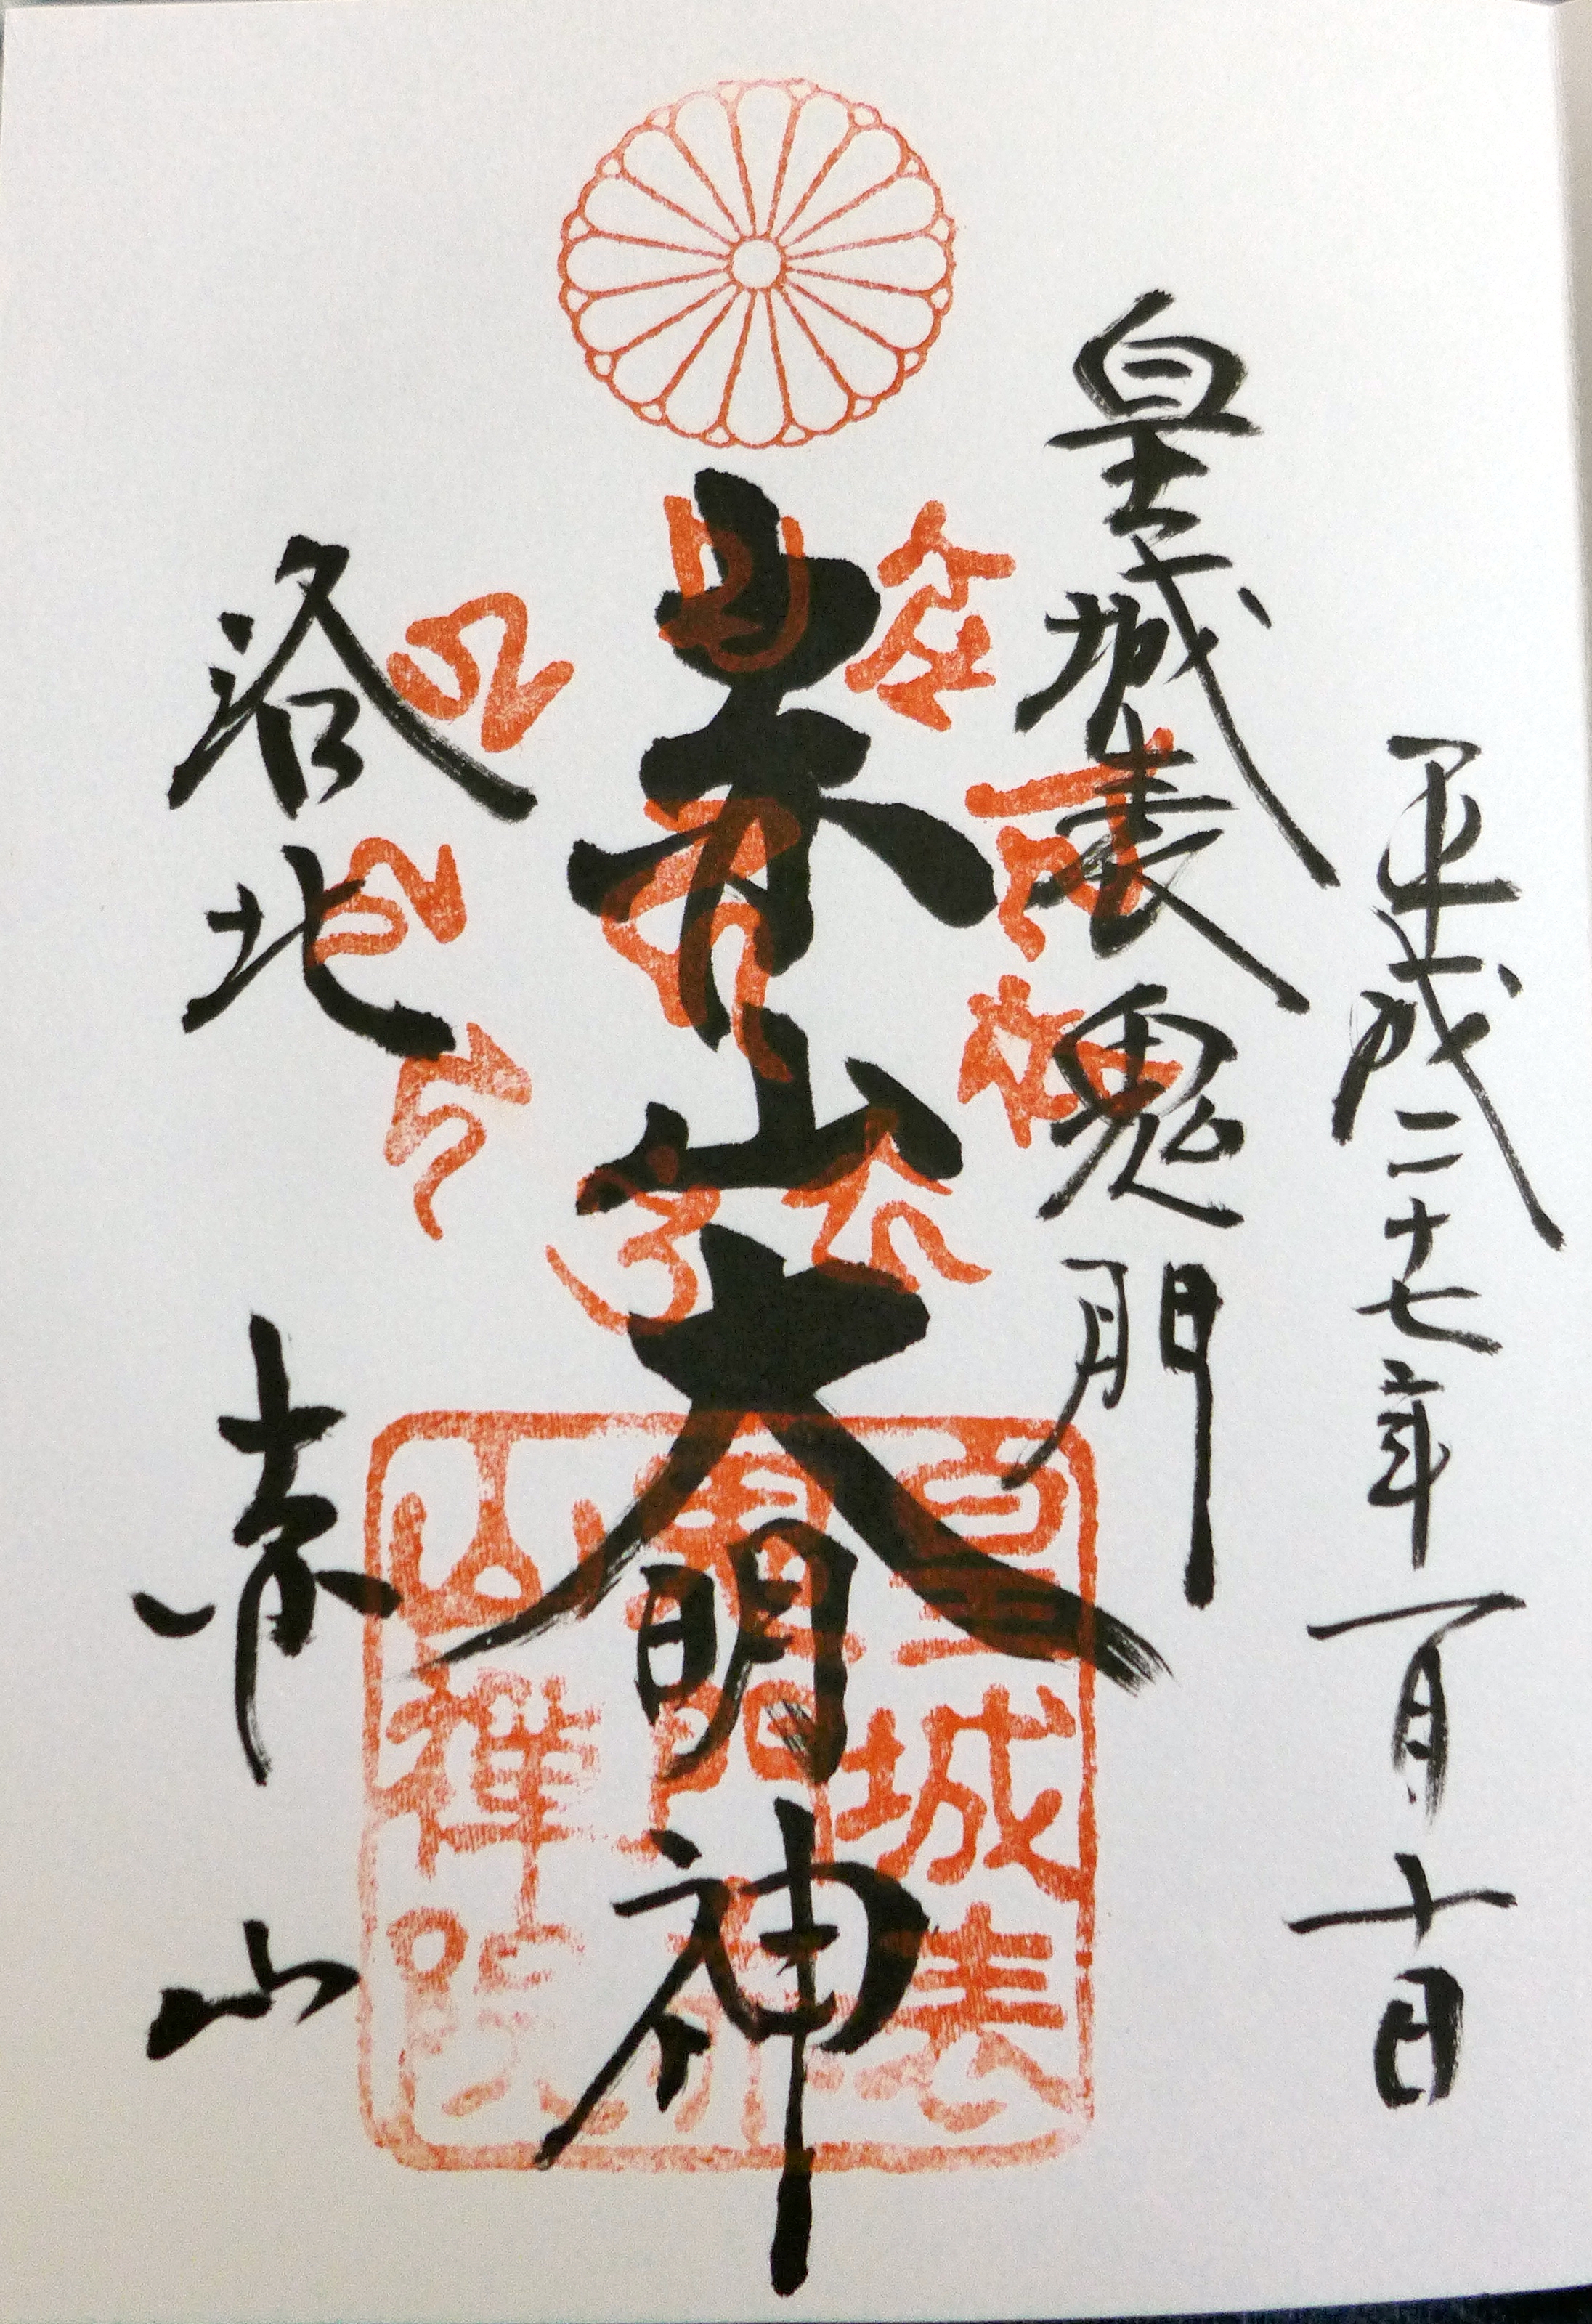 平成二十七年一月十日
皇城表鬼門
赤山大明神
洛北 赤山
皇城表
鬼門赤
山禪院